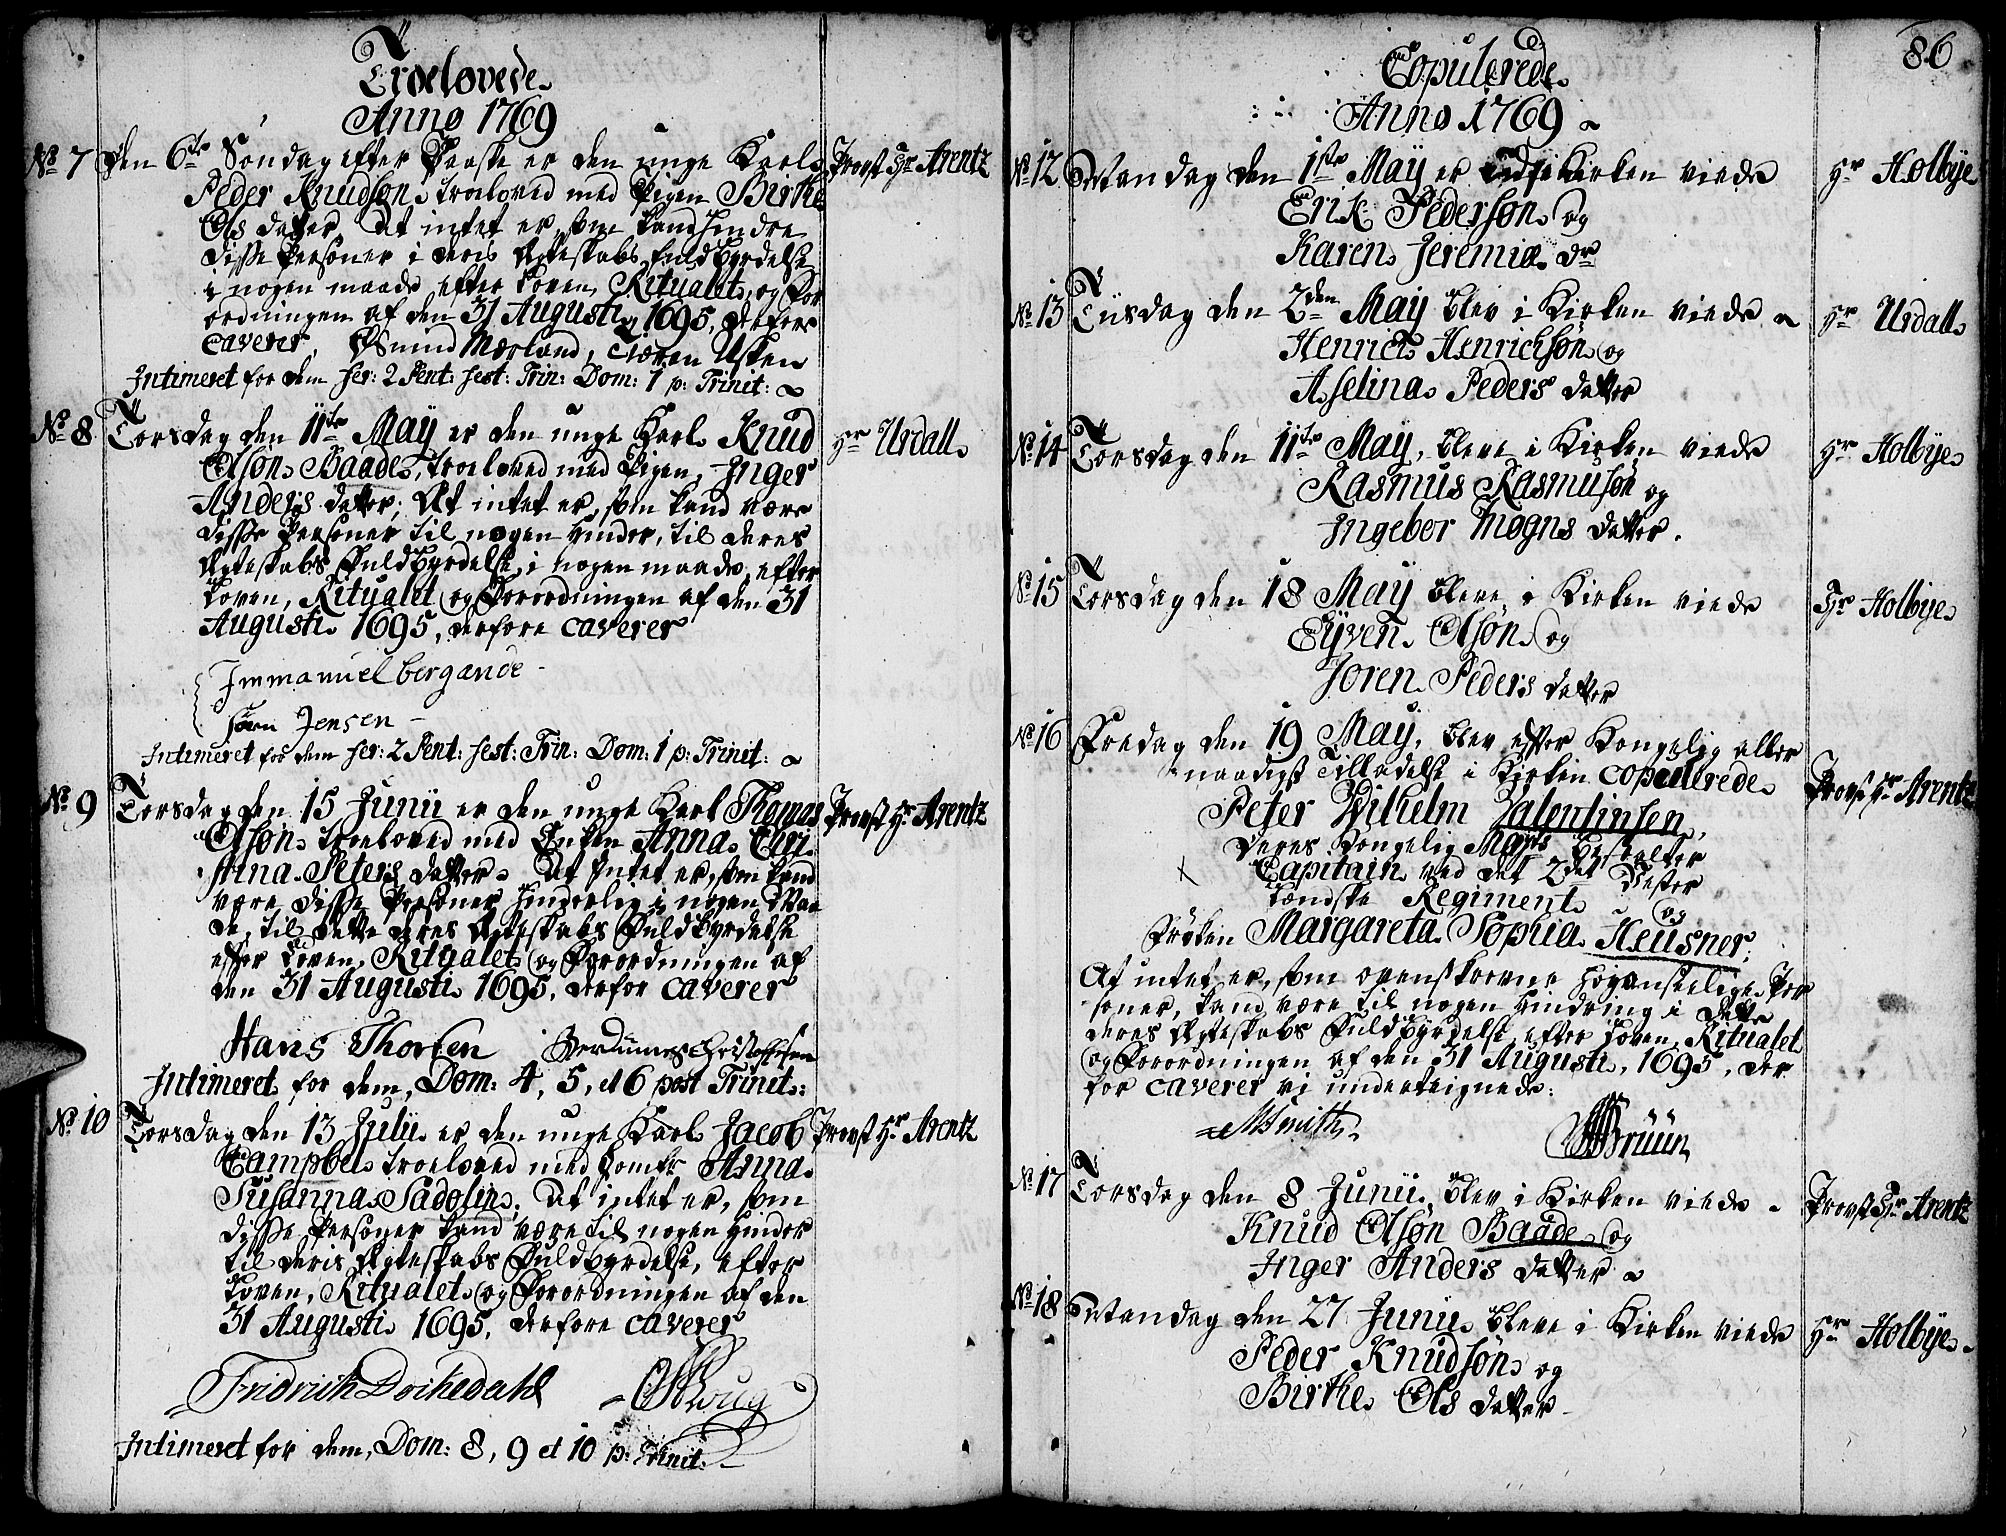 Troelovede
Anno 1769
No 7 Den 6te Søndag efter Paaske er den unge Karl Provst Hr Arentz
Peder Knudsøn troeloved med Pigen Birthe
Ols datter. At intet er, som kand hindre
disse Personer i deris Ægteskabs fuldbyrdelse
i nogen maade efter Loven, Ritualet, og For
ordningen af den 31 Augusti 1695, derfore
caverer Osmund Mærland, Søren Usken
Intimeret for dem fer: 2 Pent: fest: Trin: Dom: 1 p: Trinit:
No 8 Torsdag den 11te May er den unge Karl Knud Hr Urdall
Olsøn Baade, troeloved med Pigen, Inger
Anders datter; At intet er, som kand være
disse Personer til nogen Hinder, til deres
Ægteskabs Fuldbyrdelse, i nogen maade, efter
Loven, Ritualet og Forordningen af den 31
Augusti 1695, derfore caverer
Immanuel bergande
Jensen
Intimeret for dem fer: 2 Pent: fest: Trin: Dom: 1 p: Trinit:
No 9 Torsdag den 15 Junii er den unge Karl Thomas Provst Hr Arentz
Olsøn troeloved med Enken Anna Chri-
stina Peters datter. At intet er, som kand
være disse Personer Hinderlig i nogen Maa
de, til dette deres Ægteskabs Fuldbyrdelse
efter Loven, Ritualet og Forordningen af
den 31 Augusti 1695, derfor caverer
Hans Thorsen Christophersen
Intimeret for dem, Dom: 4, 5, et 6 post Trinit:
No 10 Torsdag den 13 Julii er den unge Karl Jacob Provst Hr Arentz
Campbel troeloved med Jomfr Anna
Susanna Sadolin; At intet er, som
disse Personer kand være til nogen Hinder
til deris Ægteskabs Fuldbyrdelse, efter
Loven, Ritualet og Forordningen af den
31 Augusti 1695, derfore caverer
Fridrich Dockedahl
Intimeret for dem, Dom: 8, 9 et 10 p: Trinit:
86
Copulerede
Anno 1769
No 12 Mandag den 1ste May er udj Kirken viede Hr Holbye
Erik Pedersøn og
Karen Jeremiæ Dr
No 13 Tiisdag den 2den May blev i Kirken viede Hr Urdall
Henrich Henrichsøn og
Aselina Peders datter
No 14 Torsdag den 11te May, bleve i Kirken viede Hr Holbye
Rasmus Rasmusøn og
Ingebor Mogns datter.
No 15 Torsdag den 18 May bleve i Kirken viede Hr Holbye
Eyven Olsøn og
Joren Peders datter
No 16 Fredag den 19 May, blev efter Kongelig aller
naadigst Tilladelse i Kirken copulerede Provst Hr Arentz
Peter Wilhelm Valentinsen,
Deres Kongelig Mayts Bestalter
Capitain ved det 2det Vester
lændske Regiment og
Frøken Margareta Sophia Heusner;
At intet er, som ovenskrevne Høyanseelige Per
soner, kand være til nogen Hindring i dette
deres Ægteskabs Fuldbyrdelse efter Loven, Ritualet
og Forordningen af den 31 Augusti, 1695, der
for caverer vi underteignede:
MSmith Brüün
No 17 Torsdag den 8 Junii blev i Kirken viede Provst Hr Arentz
Knud Olsøn Baade og
Inger Anders datter
No 18 Mandag den 27 Junii bleve i Kirken viede Hr Holbye
Peder Knudsøn og
Birthe Ols datter